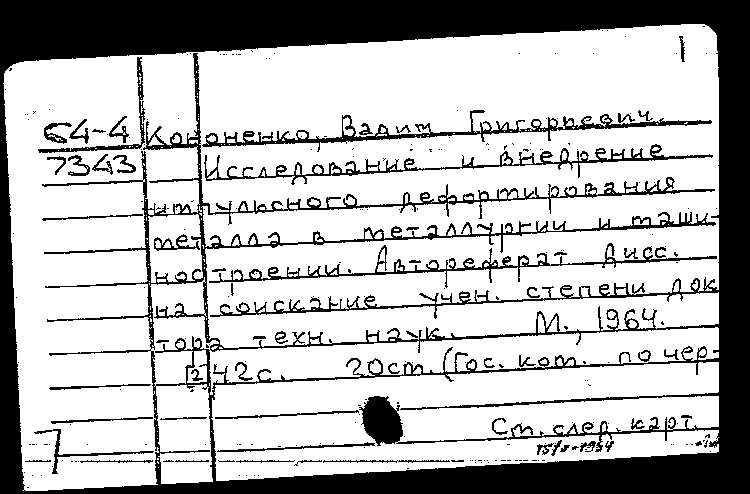 1
64-4 Кононенко, Вадим Григорьевич.
7343 Исследование и внедрение
импульсного деформирования
металла в металлургии и маши-
ностроении. Автореферат дисс.
на соискание учен. степени док
тора техн. наук. М., 1964.
[2] 42 с. 20 см. (Гос. ком. по чер-
Ст. след. карт.